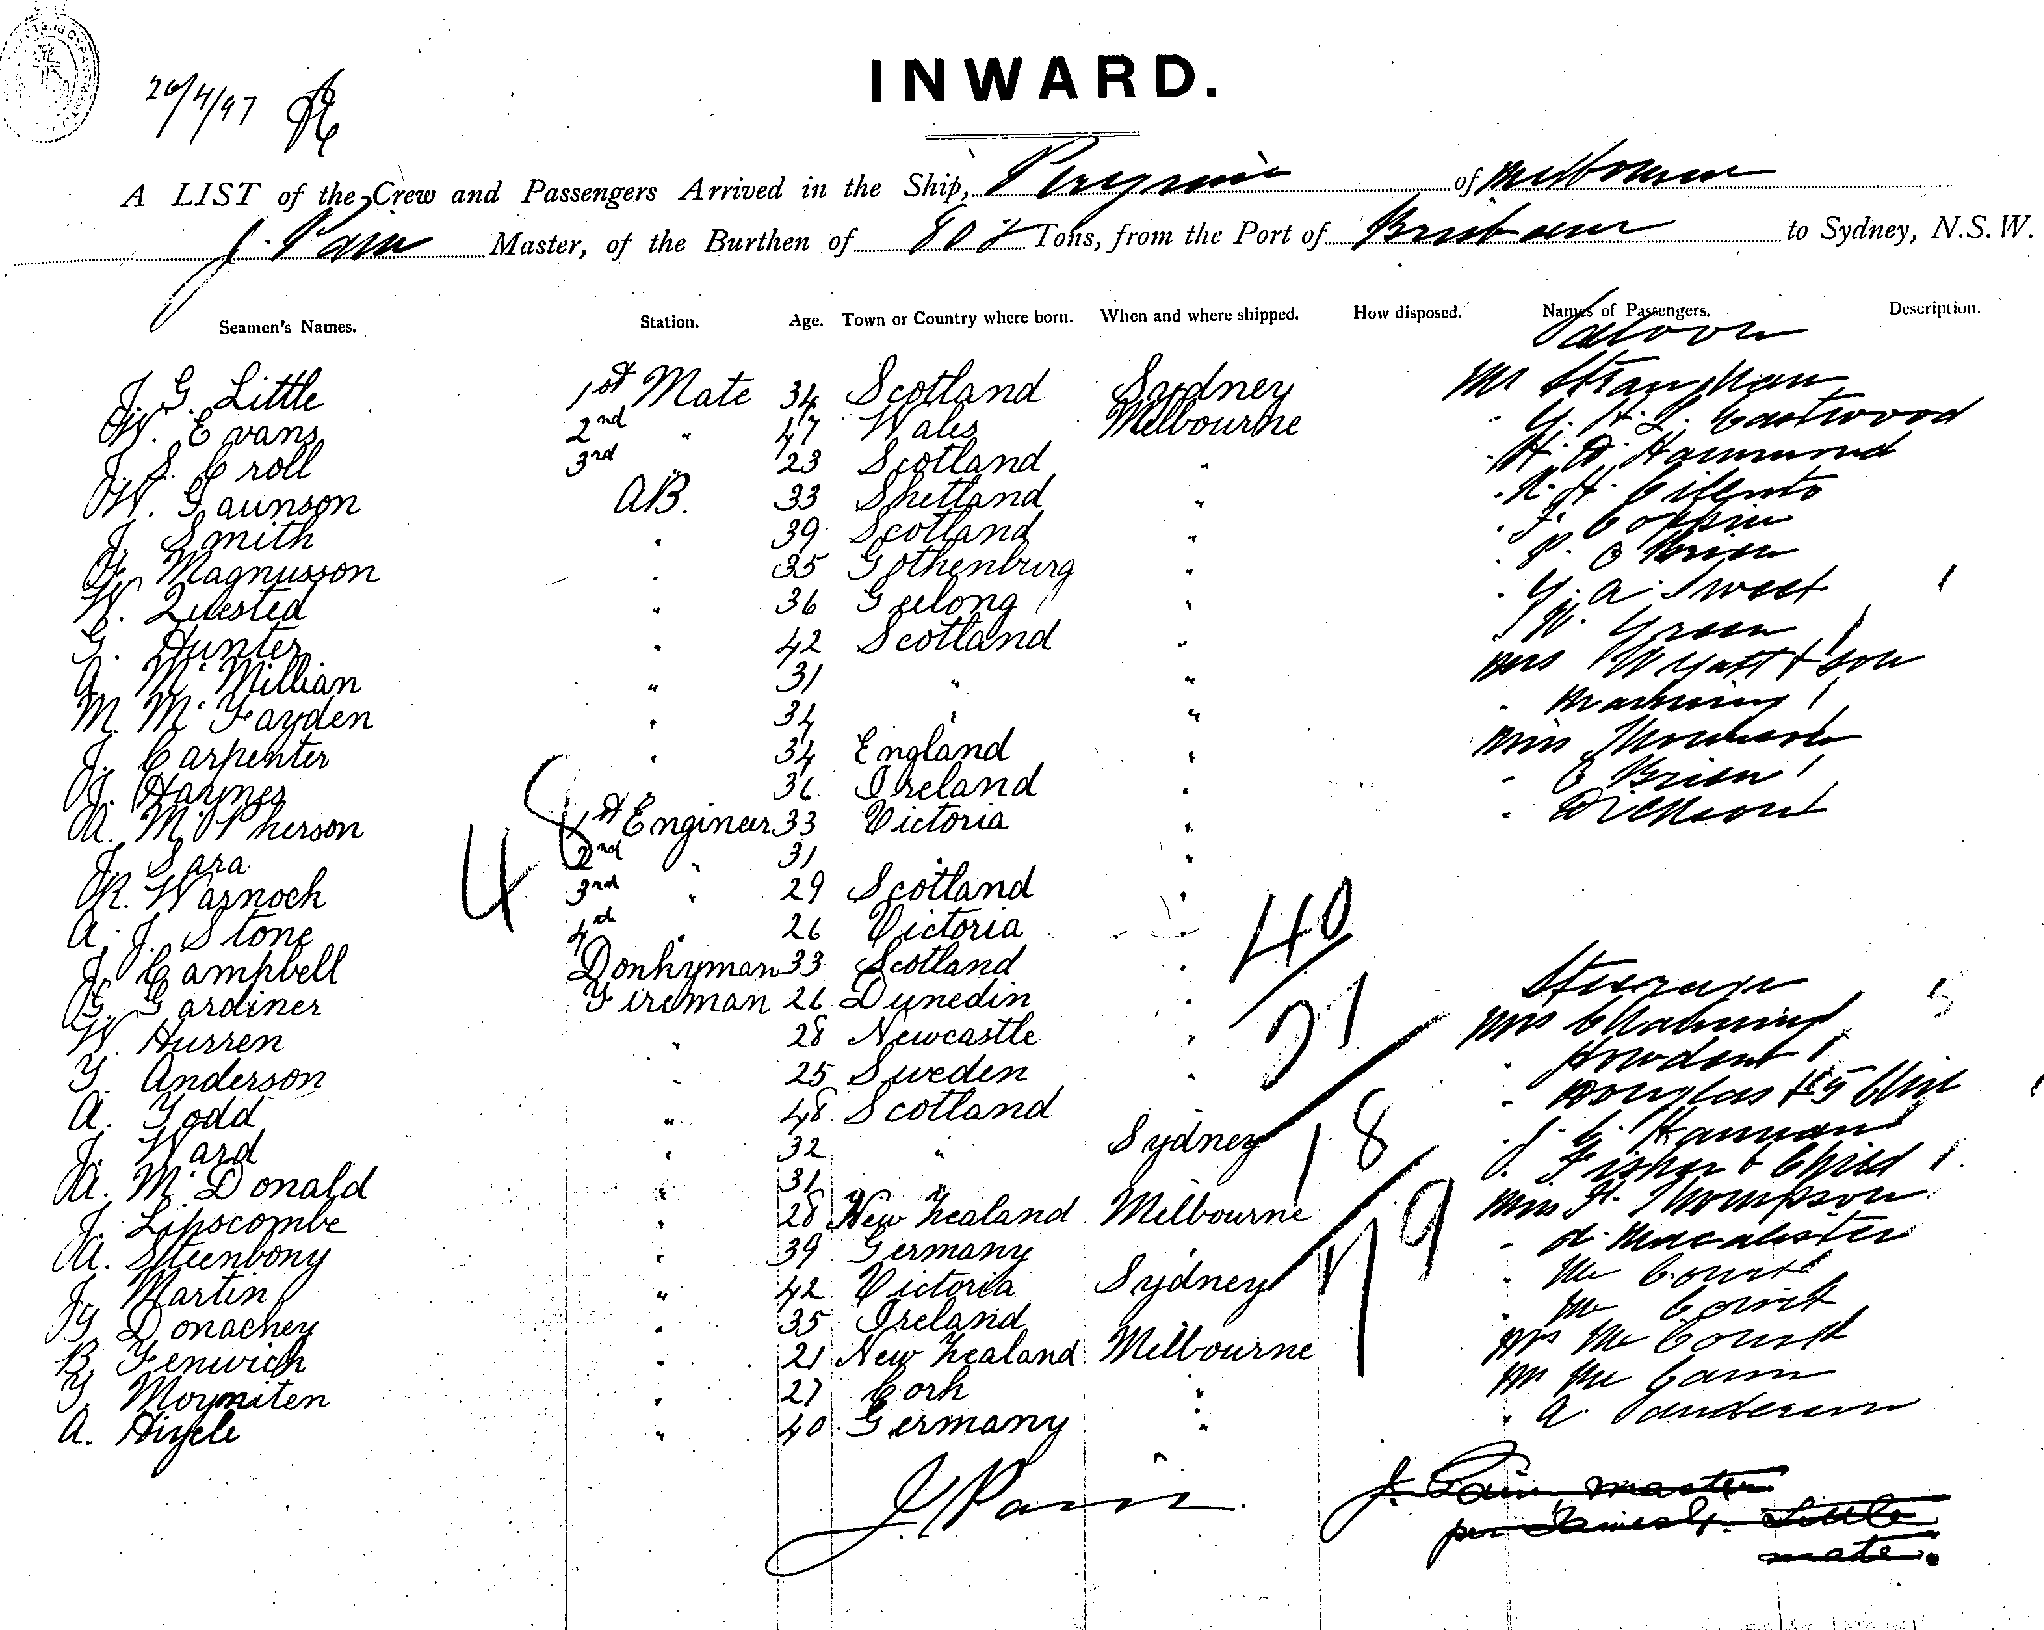 26/4/97
INWARD.
A LIST of the Crew and Passengers Arrived in the Ship, Peregrine of Melbourne
J. Pain Master, of the Burthen of Tons, from the Port of Brisbane to Sydney, N.S.W.
Seamen's Names. Station. Age. Town or Country where born. When and where shipped. How disposed. Names of Passengers. Description.
Saloon
J. G. Little 1st Mate 34 Scotland Sydney Mr Straughan
W. Evans 2nd " 47 Wales Melbourne " Eastwood
J. S. Croll 3rd 23 Scotland " " Hammond
W. Gaunson AB. 33 Shetland " " Cilento
J. Smith " 39 Scotland " " Coppin
Magnusson " 35 Gothenburg " " P. O Brien
W. Quested " 36 Geelong " " G. A. Sweet 1
G. Hunter " 42 Scotland " W. Green 1
A. McMillian " 31 " " Mrs Wyatt & son
M. McFayden " 34 " " " Manning 1
J. Carpenter " 34 England " Miss
Harmer " 36 Ireland " " O Brien 1
A. McPherson 1st Engineer 33 Victoria " " Dickson
J. Sara 2nd " 31 "
48
R. Warnoch 3rd " 29 Scotland "
A. J. Stone 4d " 26 Victoria "
40
J. Campbell Donkyman 33 Scotland " Steerage
G. Gardiner Fireman 26 Dunedin " Mrs Channing
W. Hurren " 28 Newcastle "
31
Anderson " 25 Sweden " " Douglas & 5 Chil
A. Todd " 48 Scotland " Hannan
J. Ward " 32 " Sydney J. Fisher & Child 1
18
A. McDonald " 31 " Miss H. Thompson
J. Lipscombe " 28 New Zealand Melbourne " Macalister
79
A. Steenbony " 39 Germany " Mc Court
J. Martin " 42 Victoria Sydney " Mc Court
Donachey " 35 Ireland Mc Court
B. Fenwick " 21 New Zealand Melbourne Mr Mc Cann
Moyniten " 27 Cork " " A. Sanderson
A. Higele " 40 Germany "
J. Pain
J. Pain master
per James G. Little
mate.